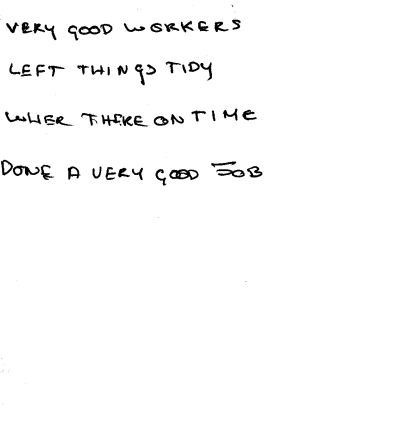 VERY GOOD WORKERS
LEFT THINGS TIDY
WHER THERE ON TIME
DONE A VERY GOOD JOB